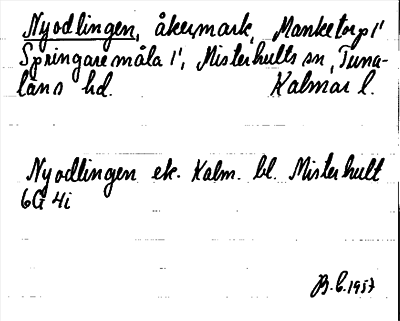 Nyodlingen, åkermark, Manketorp 1'
Springaremåla 1', Misterhults sn, Tuna-
läns hd. Kalmar l.
Nyodlingen ek. Kalm. bl. Misterhult
6G 4i
B.C. 1957